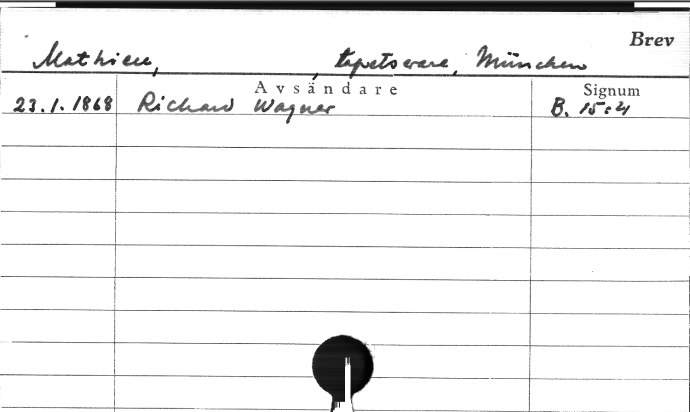 Brev
Mathieu, , tapetserare, München
Avsändare Signum
23.1.1868 Richard Wagner B. 15:4